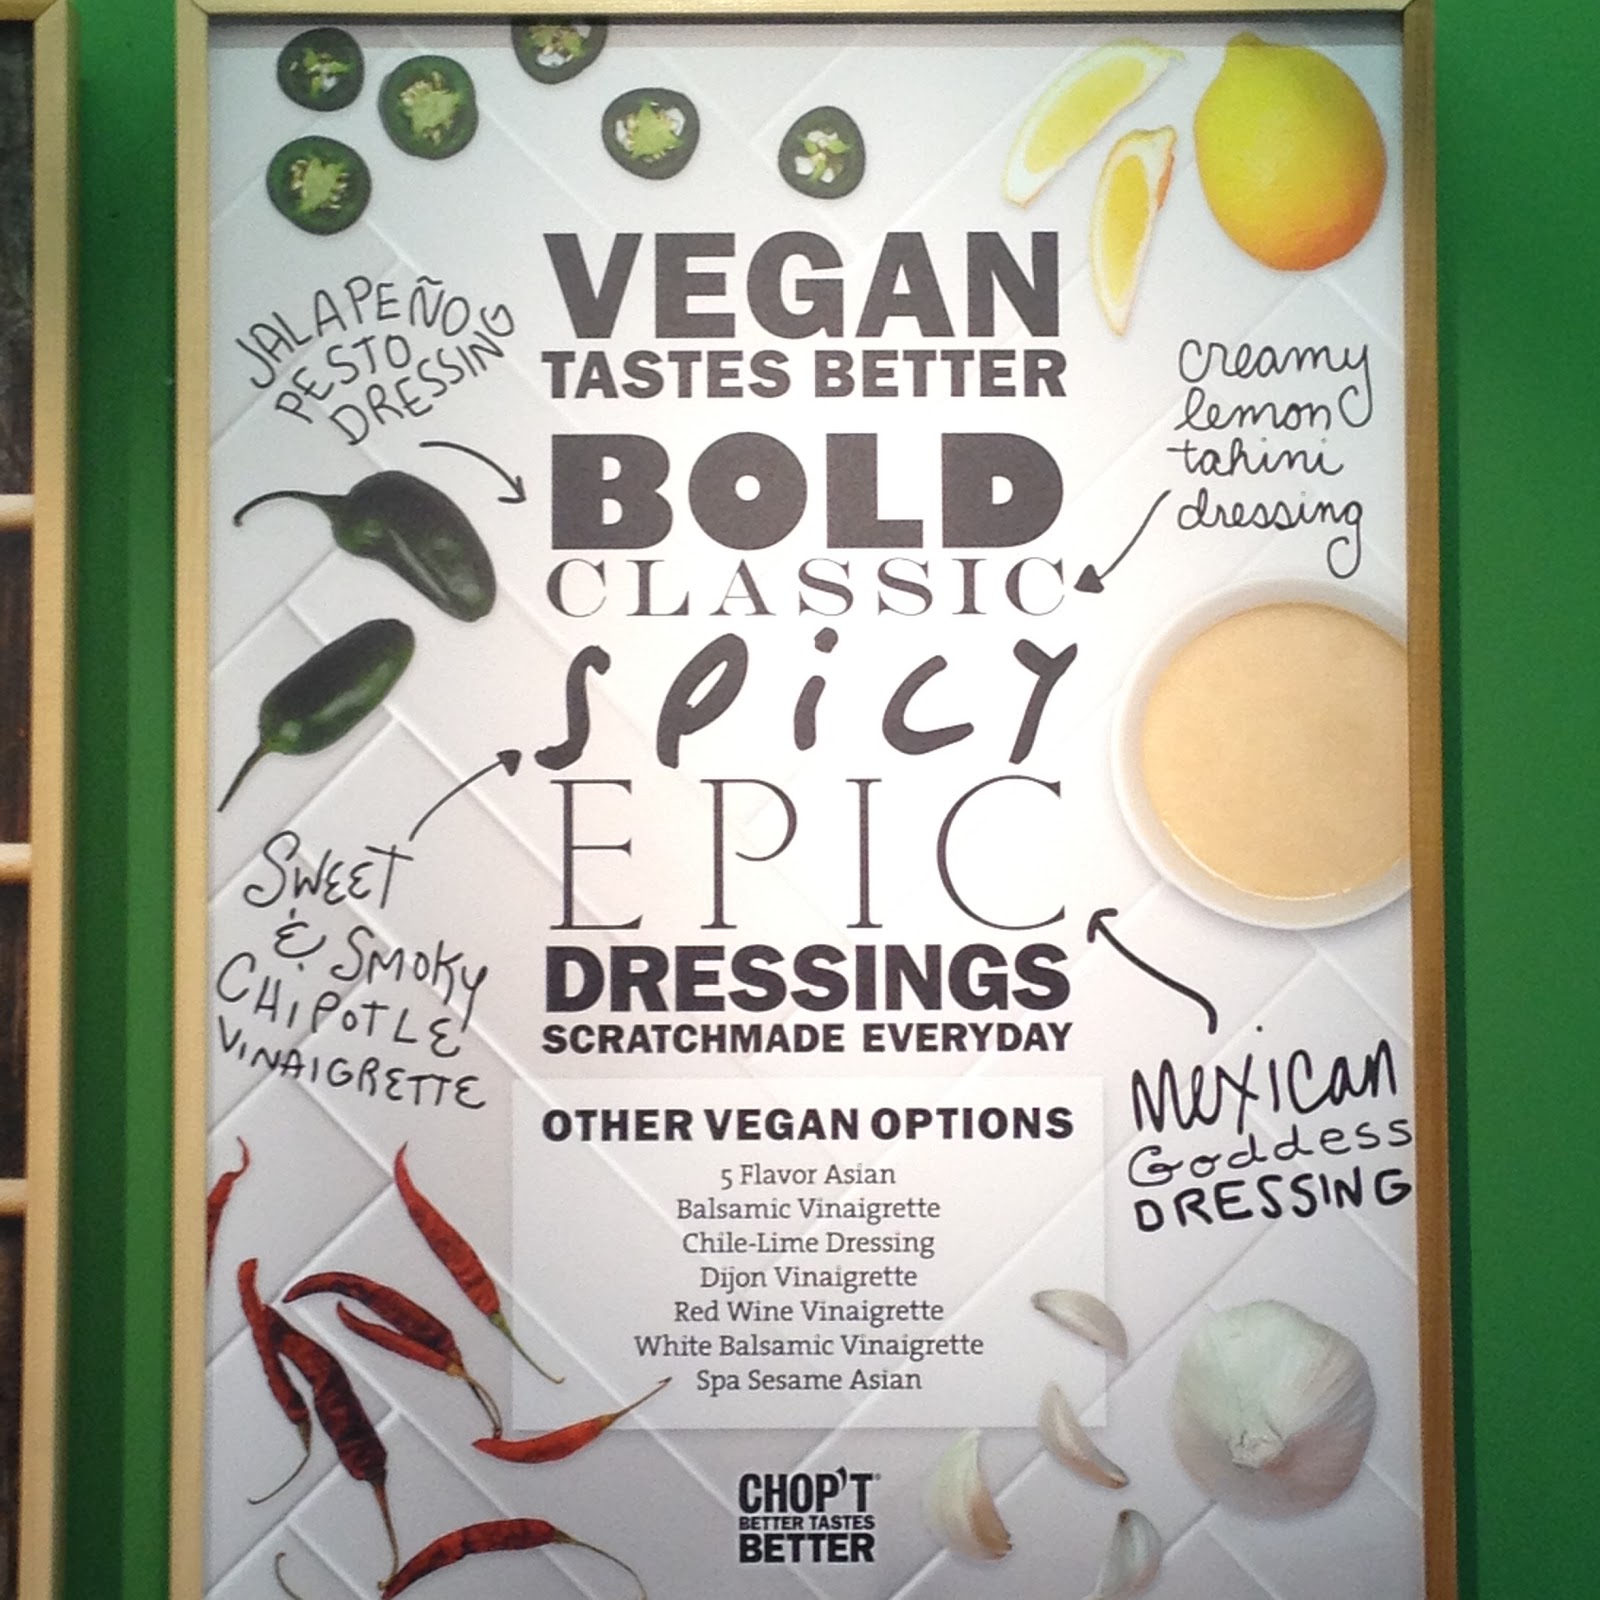 VEGAN
TASTES BETTER
JALAPEÑO
PESTO
DRESSING
creamy
lemon
tahini
dressing
BOLD
CLASSIC
SPiCY
EPIC
SWEET
& SMOKY
CHIPOTLE
VINAIGRETTE
DRESSINGS
SCRATCHMADE EVERYDAY
MEXiCan
Goddess
DRESSING
OTHER VEGAN OPTIONS
5 Flavor Asian
Balsamic Vinaigrette
Chile-Lime Dressing
Dijon Vinaigrette
Red Wine Vinaigrette
White Balsamic Vinaigrette
Spa Sesame Asian
CHOP'T®
BETTER TASTES
BETTER